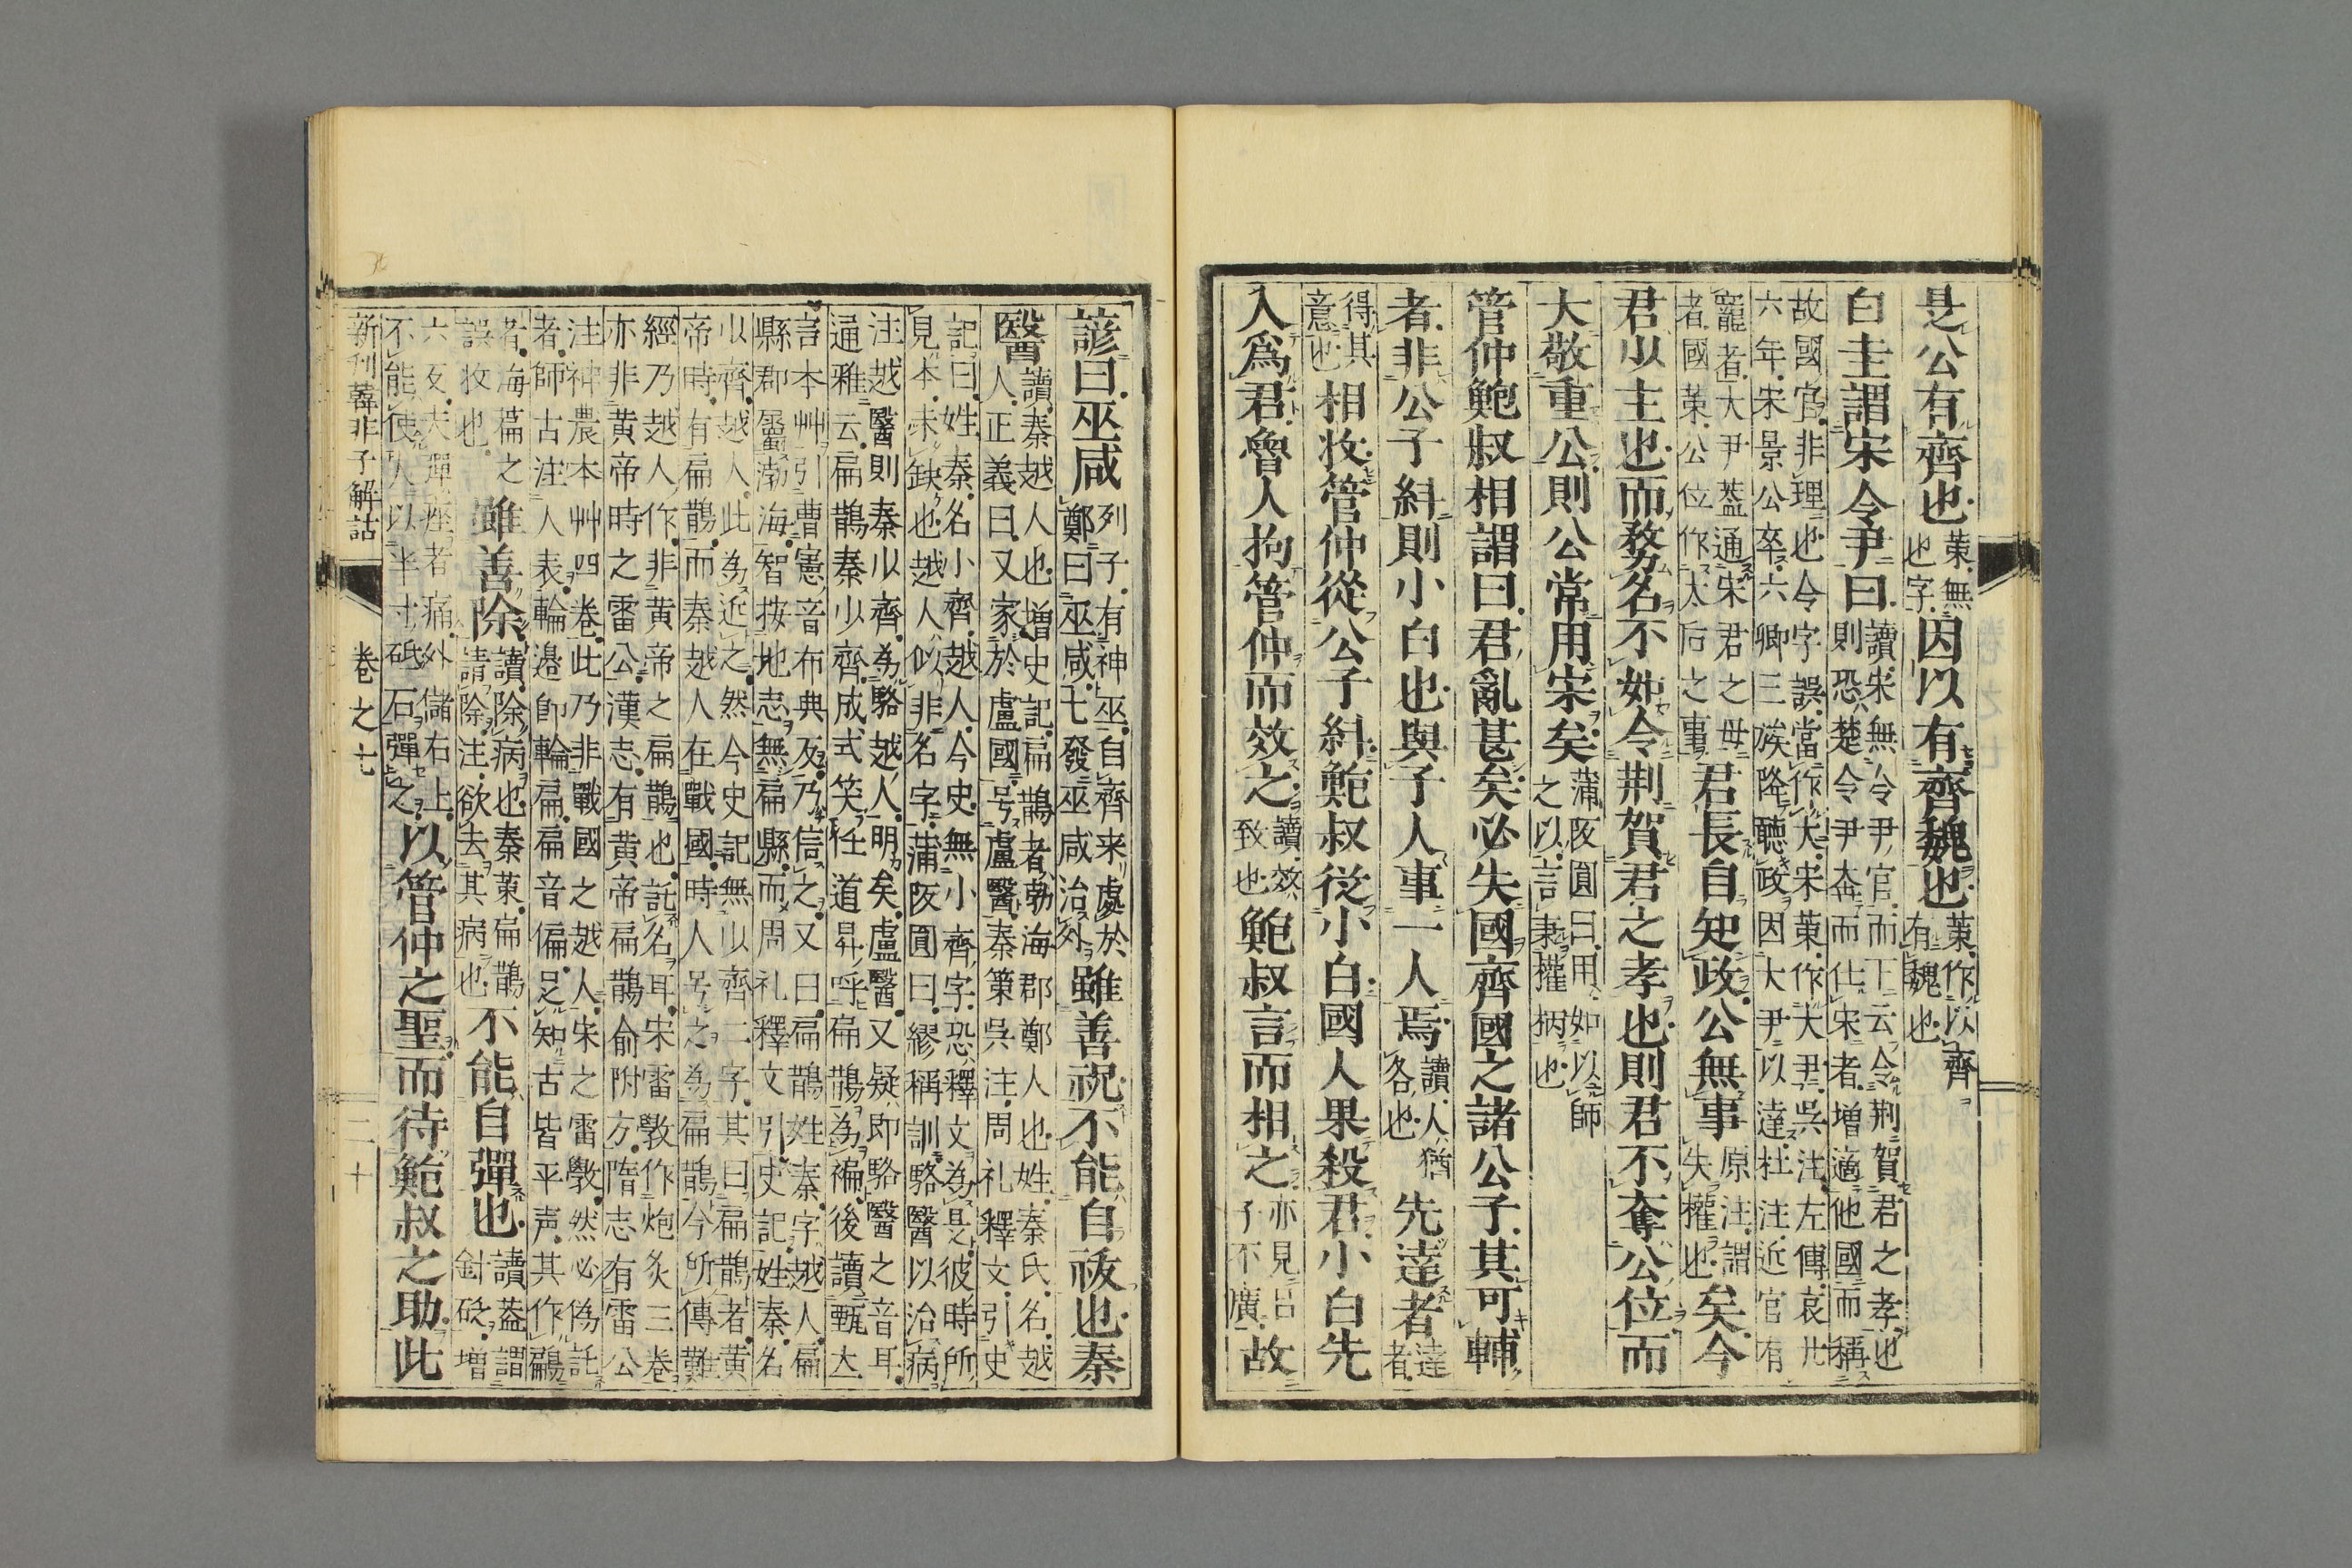 是公有齊也策無也字因以有齊魏也策作以齊有魏也
白圭謂宋令尹曰讀宋無令尹官而下云令荆賀君之孝也則恐楚令尹奔而仕宋者増適他國而稱
故國官非理也令字誤當作大宋策作大尹呉注左傳哀廿六年宋景公卒六卿三族降聽政因大尹以達杜注近官有
寵者大尹葢通宋君之母者國策公位作太后之事君長自知政公無事原注謂失權也矣今
君少主也而務名不如令荆賀君之孝也則君不奪公位而
大敬重公則公常用宋矣蒲阪圓曰用如以師之以言秉權柄也
管仲鮑叔相謂曰君亂甚矣必失國齊國之諸公子其可輔
者非公子糾則小白也與子人事一人焉讀人猶各也先達者達者
得其意也相收管仲從公子糾鮑叔從小白國人果殺君小白先
入爲君魯人拘管仲而效之讀效致也鮑叔言而相之亦見呂子不廣故
諺曰巫咸列子有神巫自齊来處於鄭曰巫咸七發巫咸治外雖善祝不能自祓也秦
醫讀秦越人也増史記扁鵲者勃海郡鄭人也姓秦氏名越人正義曰又家於盧國号盧醫秦策呉注周礼釋文引史
記曰姓秦名小齊越人今史無小齊字恐釋文為是彼時所見本未缺也越人似非名字蒲阪圓曰繆稱訓駱醫以治病
注越醫則秦少齊為駱越人明矣盧醫又疑即駱醫之音耳通雅云扁鵲秦少齊成式笑任道昇呼扁鵲為褊後讀甄
言本艸引曹憲音布典反乃信之又曰扁鵲姓秦字越人扁縣郡屬渤海智按地志無扁縣而周礼釋文引史記姓秦名
少齊越人此為近之然今史記無少齊二字其曰扁鵲者黄帝時有扁鵲而秦越人在戰國時人号之為扁鵲今所傳難
經乃越人作非黄帝之扁鵲也託名耳宋雷斅作炮炙三卷亦非黄帝時之雷公漢志有黄帝扁鵲俞附方隋志有雷公
注神農本艸四卷此乃非戰國之越人宋之雷斅然必偽託者師古注人表輪邉卽輪扁扁音偏足知古皆平声其作鶣
者海萹之誤牧也雖善除讀除病也秦策扁鵲請除注欲去其病也不能自彈也讀葢謂針砭増
六反夫彈痤者痛外儲右上不能使人以半寸砥石彈之以管仲之聖而待鮑叔之助此
新刊韓非子解詁 卷之七 二十